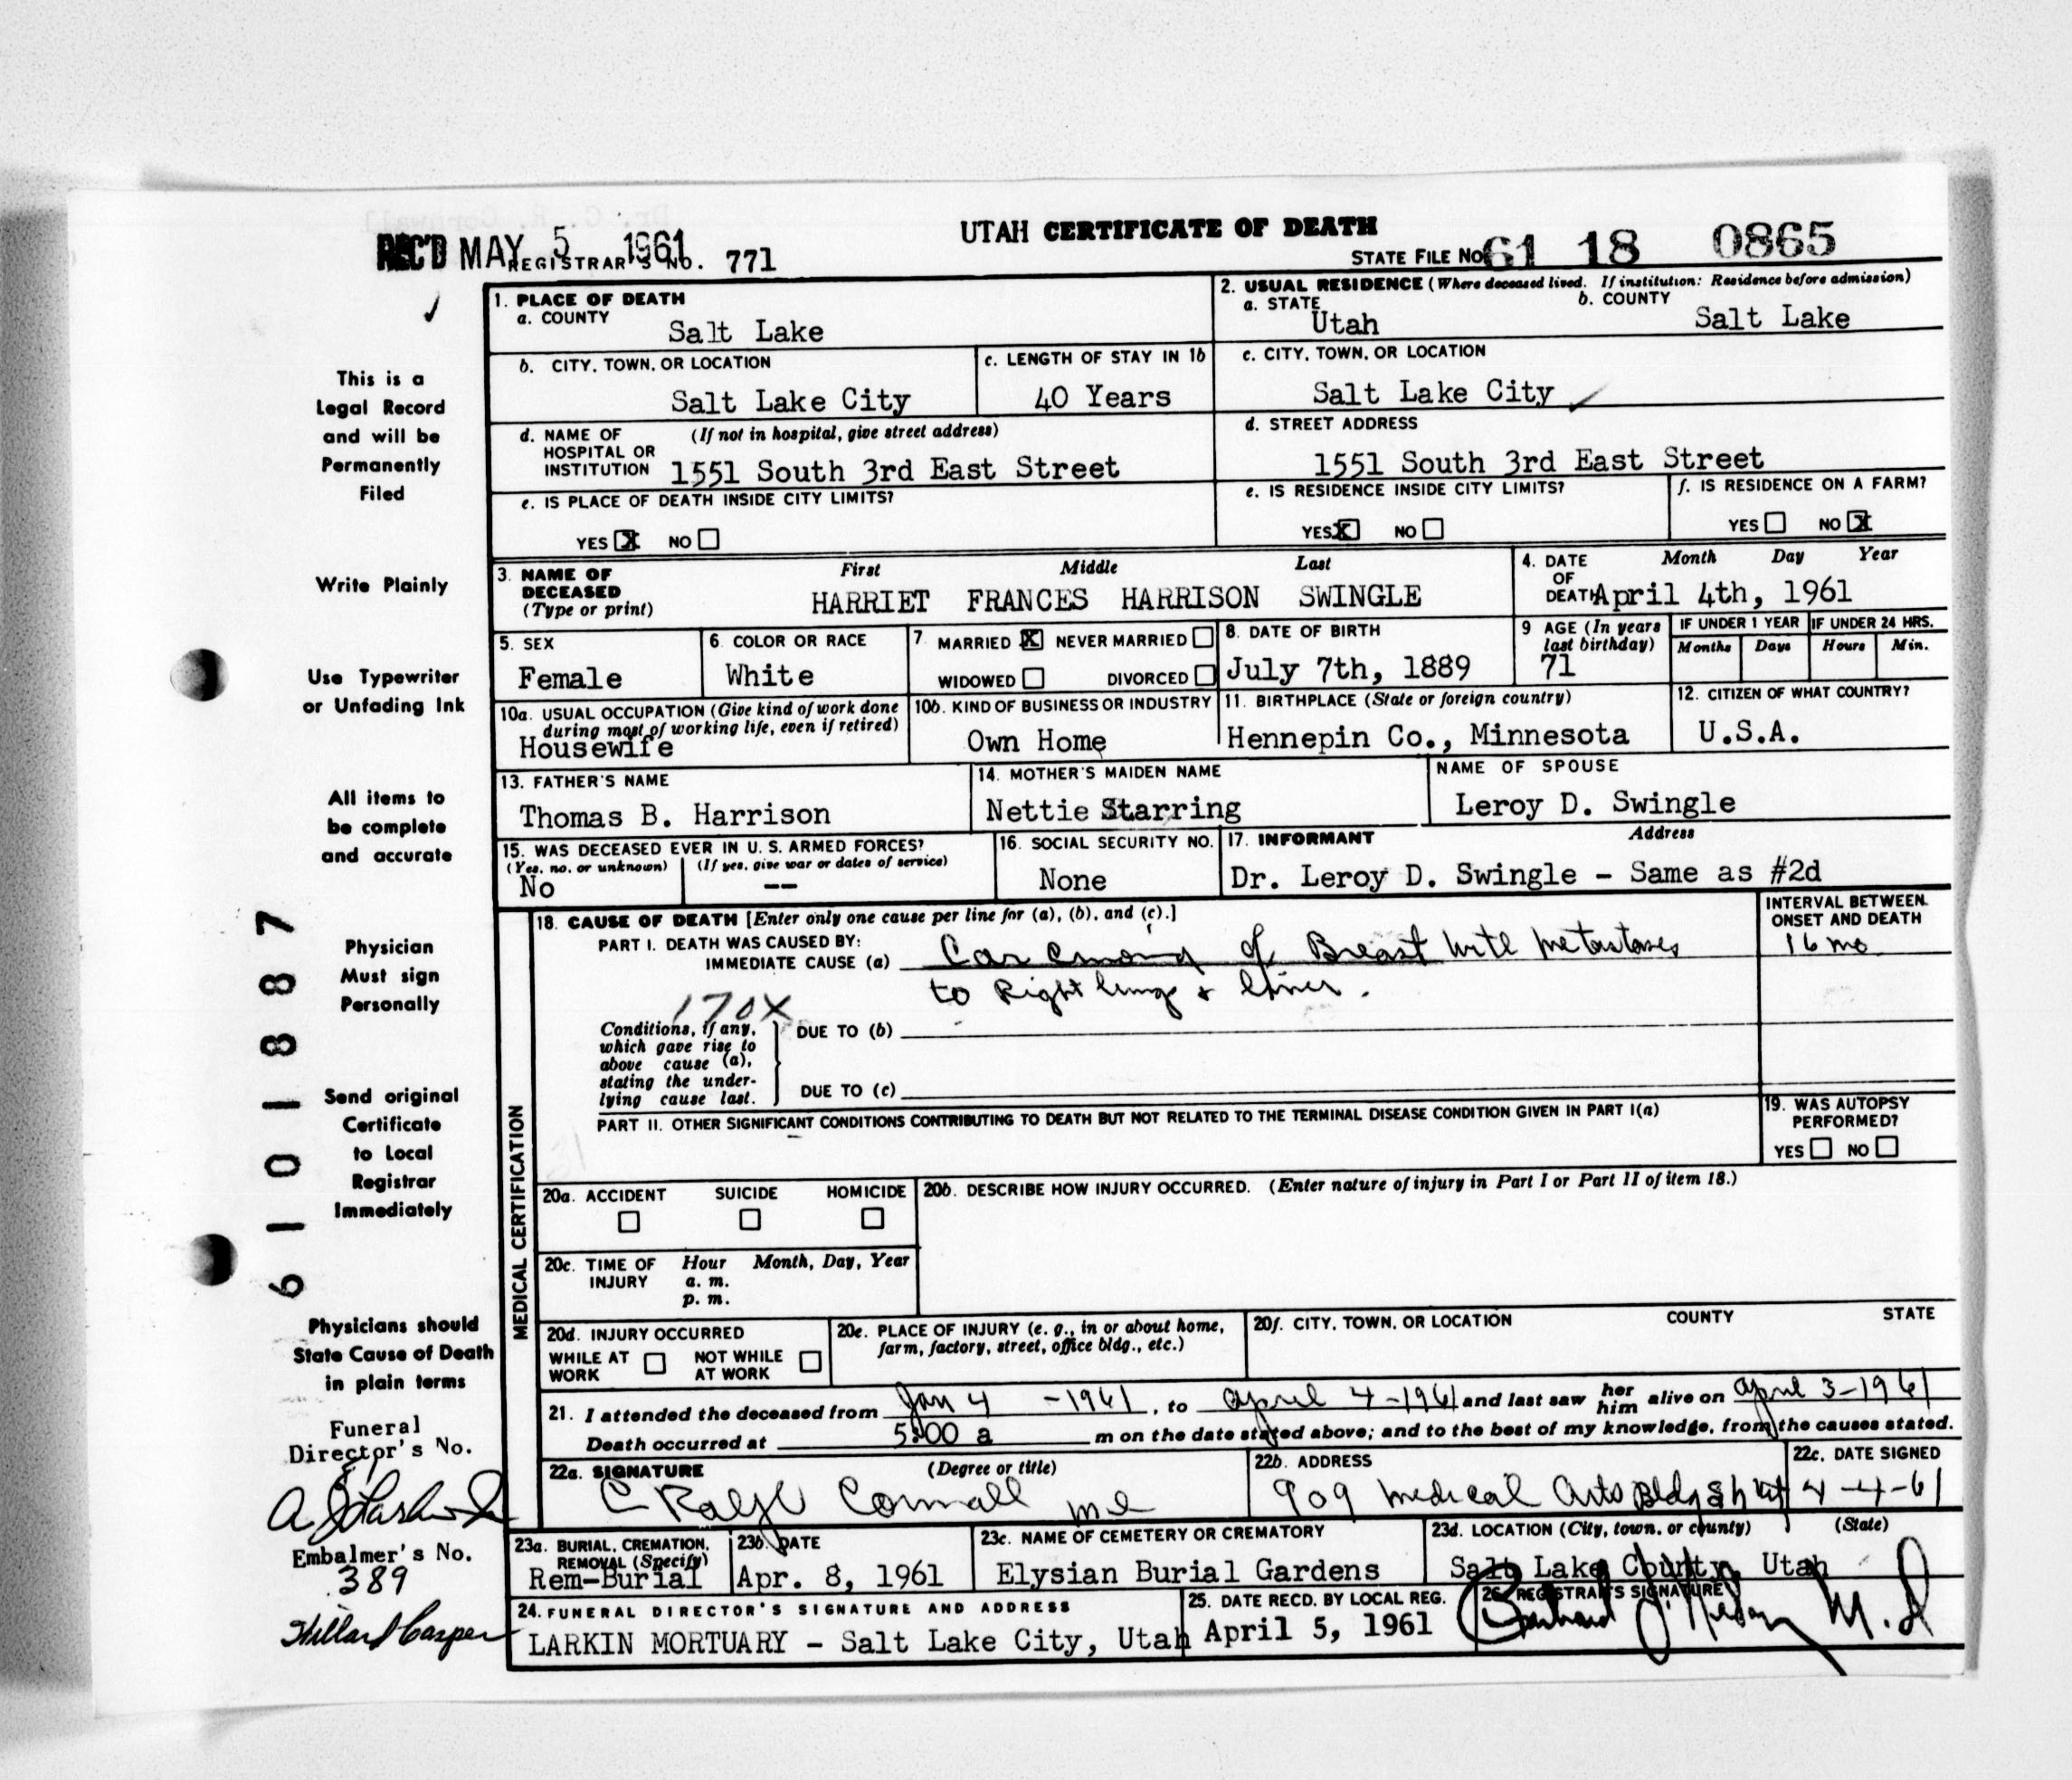 REC'D MAY 5 1961
REGISTRAR'S NO. 771
UTAH CERTIFICATE OF DEATH
STATE FILE NO. 61 18 0865
1. PLACE OF DEATH
a. COUNTY
Salt Lake
2. USUAL RESIDENCE (Where deceased lived. If institution: Residence before admission)
a. STATE
Utah
b. COUNTY
Salt Lake
b. CITY, TOWN, OR LOCATION
Salt Lake City
c. LENGTH OF STAY IN 1b
40 Years
c. CITY, TOWN, OR LOCATION
Salt Lake City
d. NAME OF (If not in hospital, give street address)
HOSPITAL OR
INSTITUTION 1551 South 3rd East Street
d. STREET ADDRESS
1551 South 3rd East Street
e. IS PLACE OF DEATH INSIDE CITY LIMITS?
YES X NO
e. IS RESIDENCE INSIDE CITY LIMITS?
YES X NO
f. IS RESIDENCE ON A FARM?
YES NO X
3. NAME OF
DECEASED
(Type or print)
First Middle Last
HARRIET FRANCES HARRISON SWINGLE
4. DATE Month Day Year
OF
DEATH April 4th, 1961
5. SEX
Female
6. COLOR OR RACE
White
7. MARRIED X NEVER MARRIED
WIDOWED DIVORCED
8. DATE OF BIRTH
July 7th, 1889
9 AGE (In years
last birthday)
71
IF UNDER 1 YEAR
Months Days
IF UNDER 24 HRS.
Hours Min.
10a. USUAL OCCUPATION (Give kind of work done
during most of working life, even if retired)
Housewife
10b. KIND OF BUSINESS OR INDUSTRY
Own Home
11. BIRTHPLACE (State or foreign country)
Hennepin Co., Minnesota
12. CITIZEN OF WHAT COUNTRY?
U.S.A.
13. FATHER'S NAME
Thomas B. Harrison
14. MOTHER'S MAIDEN NAME
Nettie Starring
NAME OF SPOUSE
Leroy D. Swingle
15. WAS DECEASED EVER IN U. S. ARMED FORCES?
(Yes, no, or unknown) (If yes, give war or dates of service)
No --
16. SOCIAL SECURITY NO.
None
17. INFORMANT Address
Dr. Leroy D. Swingle - Same as #2d
18. CAUSE OF DEATH [Enter only one cause per line for (a), (b), and (c).]
INTERVAL BETWEEN
ONSET AND DEATH
PART I. DEATH WAS CAUSED BY:
IMMEDIATE CAUSE (a) Carcinoma of Breast with metastases
to Right lung & liver.
16 mo
170X
Conditions, if any,
which gave rise to
above cause (a),
stating the under-
lying cause last.
DUE TO (b)
DUE TO (c)
PART II. OTHER SIGNIFICANT CONDITIONS CONTRIBUTING TO DEATH BUT NOT RELATED TO THE TERMINAL DISEASE CONDITION GIVEN IN PART I(a)
19. WAS AUTOPSY
PERFORMED?
YES NO
MEDICAL CERTIFICATION
20a. ACCIDENT SUICIDE HOMICIDE
20b. DESCRIBE HOW INJURY OCCURRED. (Enter nature of injury in Part I or Part II of item 18.)
20c. TIME OF Hour Month, Day, Year
INJURY a. m.
p. m.
20d. INJURY OCCURRED
WHILE AT NOT WHILE
WORK AT WORK
20e. PLACE OF INJURY (e. g., in or about home,
farm, factory, street, office bldg., etc.)
20f. CITY, TOWN, OR LOCATION COUNTY STATE
21. I attended the deceased from Jan 4 -1961, to April 4-1961 and last saw her him alive on April 3-1961
Death occurred at 5:00 a m on the date stated above; and to the best of my knowledge, from the causes stated.
22a. SIGNATURE (Degree or title)
C Ralph Cornwall MD
22b. ADDRESS
909 Medical Arts Bldg
22c. DATE SIGNED
4-4-61
23a. BURIAL, CREMATION,
REMOVAL (Specify)
Rem-Burial
23b. DATE
Apr. 8, 1961
23c. NAME OF CEMETERY OR CREMATORY
Elysian Burial Gardens
23d. LOCATION (City, town, or county) (State)
Salt Lake County, Utah
24. FUNERAL DIRECTOR'S SIGNATURE AND ADDRESS
LARKIN MORTUARY - Salt Lake City, Utah
25. DATE RECD. BY LOCAL REG.
April 5, 1961
26. REGISTRAR'S SIGNATURE
M.D
This is a
Legal Record
and will be
Permanently
Filed
Write Plainly
Use Typewriter
or Unfading Ink
All items to
be complete
and accurate
Physician
Must sign
Personally
Send original
Certificate
to Local
Registrar
Immediately
Physicians should
State Cause of Death
in plain terms
Funeral
Director's No.
Embalmer's No.
389
Hillard Casper
6101887